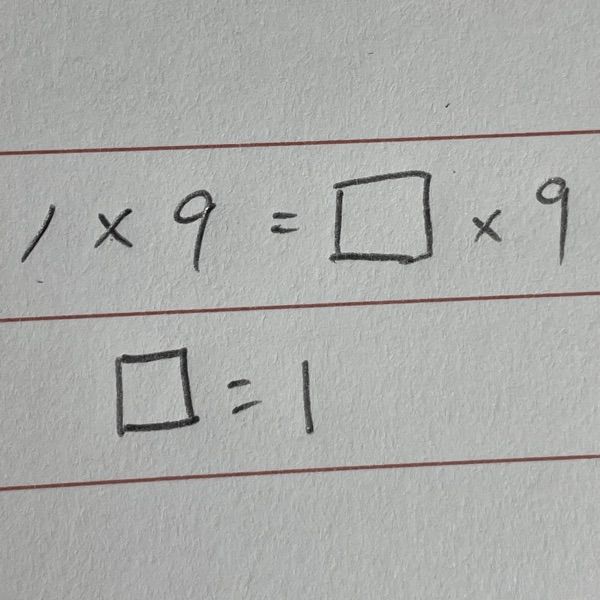 1 × 9 = □ × 9
□ = 1